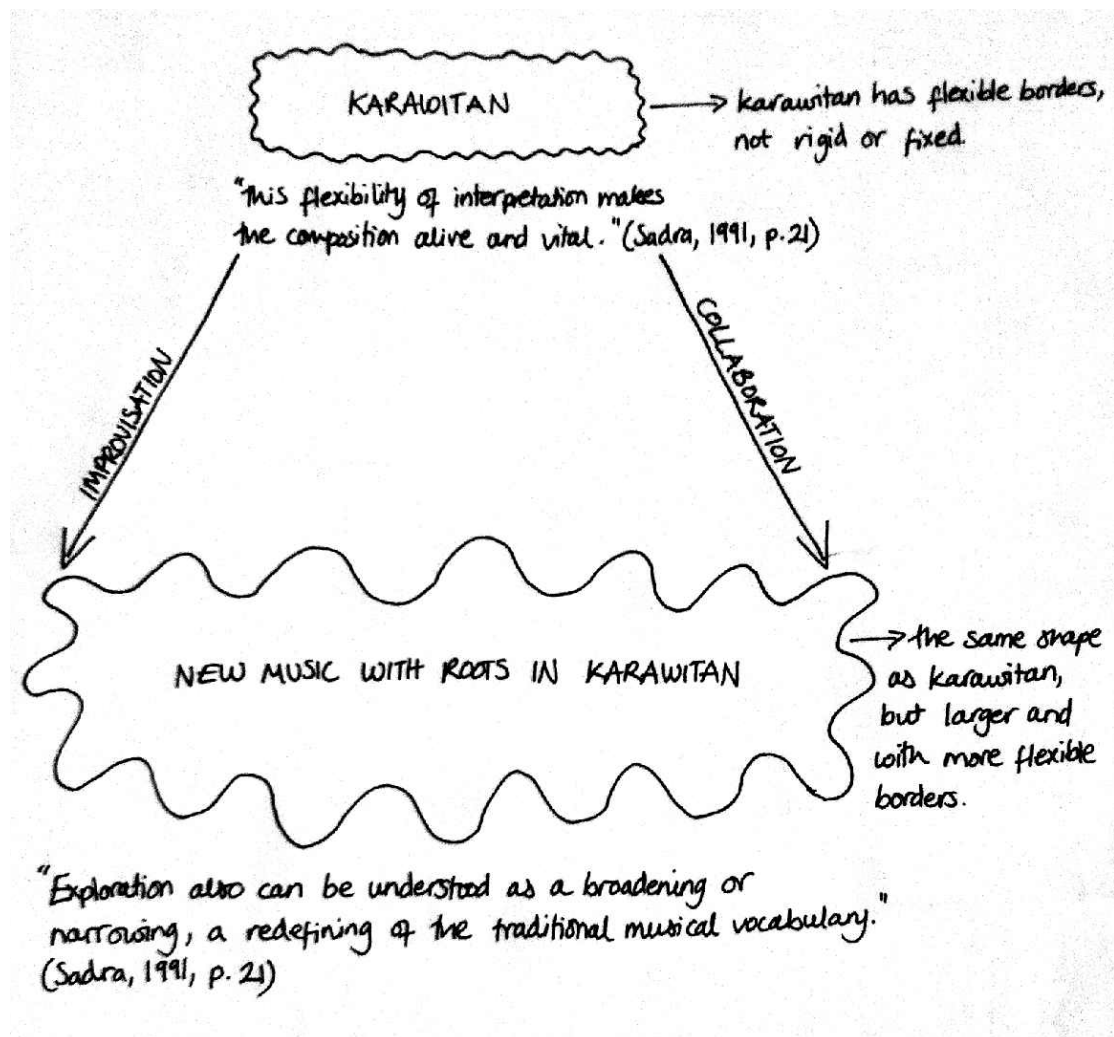 KARAWITAN
karawitan has flexible borders,
not rigid or fixed.
"This flexibility of interpretation makes
the composition alive and vital." (Sadra, 1991, p.21)
IMPROVISATION
COLLABORATION
NEW MUSIC WITH ROOTS IN KARAWITAN
the same shape
as karawitan,
but larger and
with more flexible
borders.
"Exploration also can be understood as a broadening or
narrowing, a redefining of the traditional musical vocabulary."
(Sadra, 1991, p. 21)